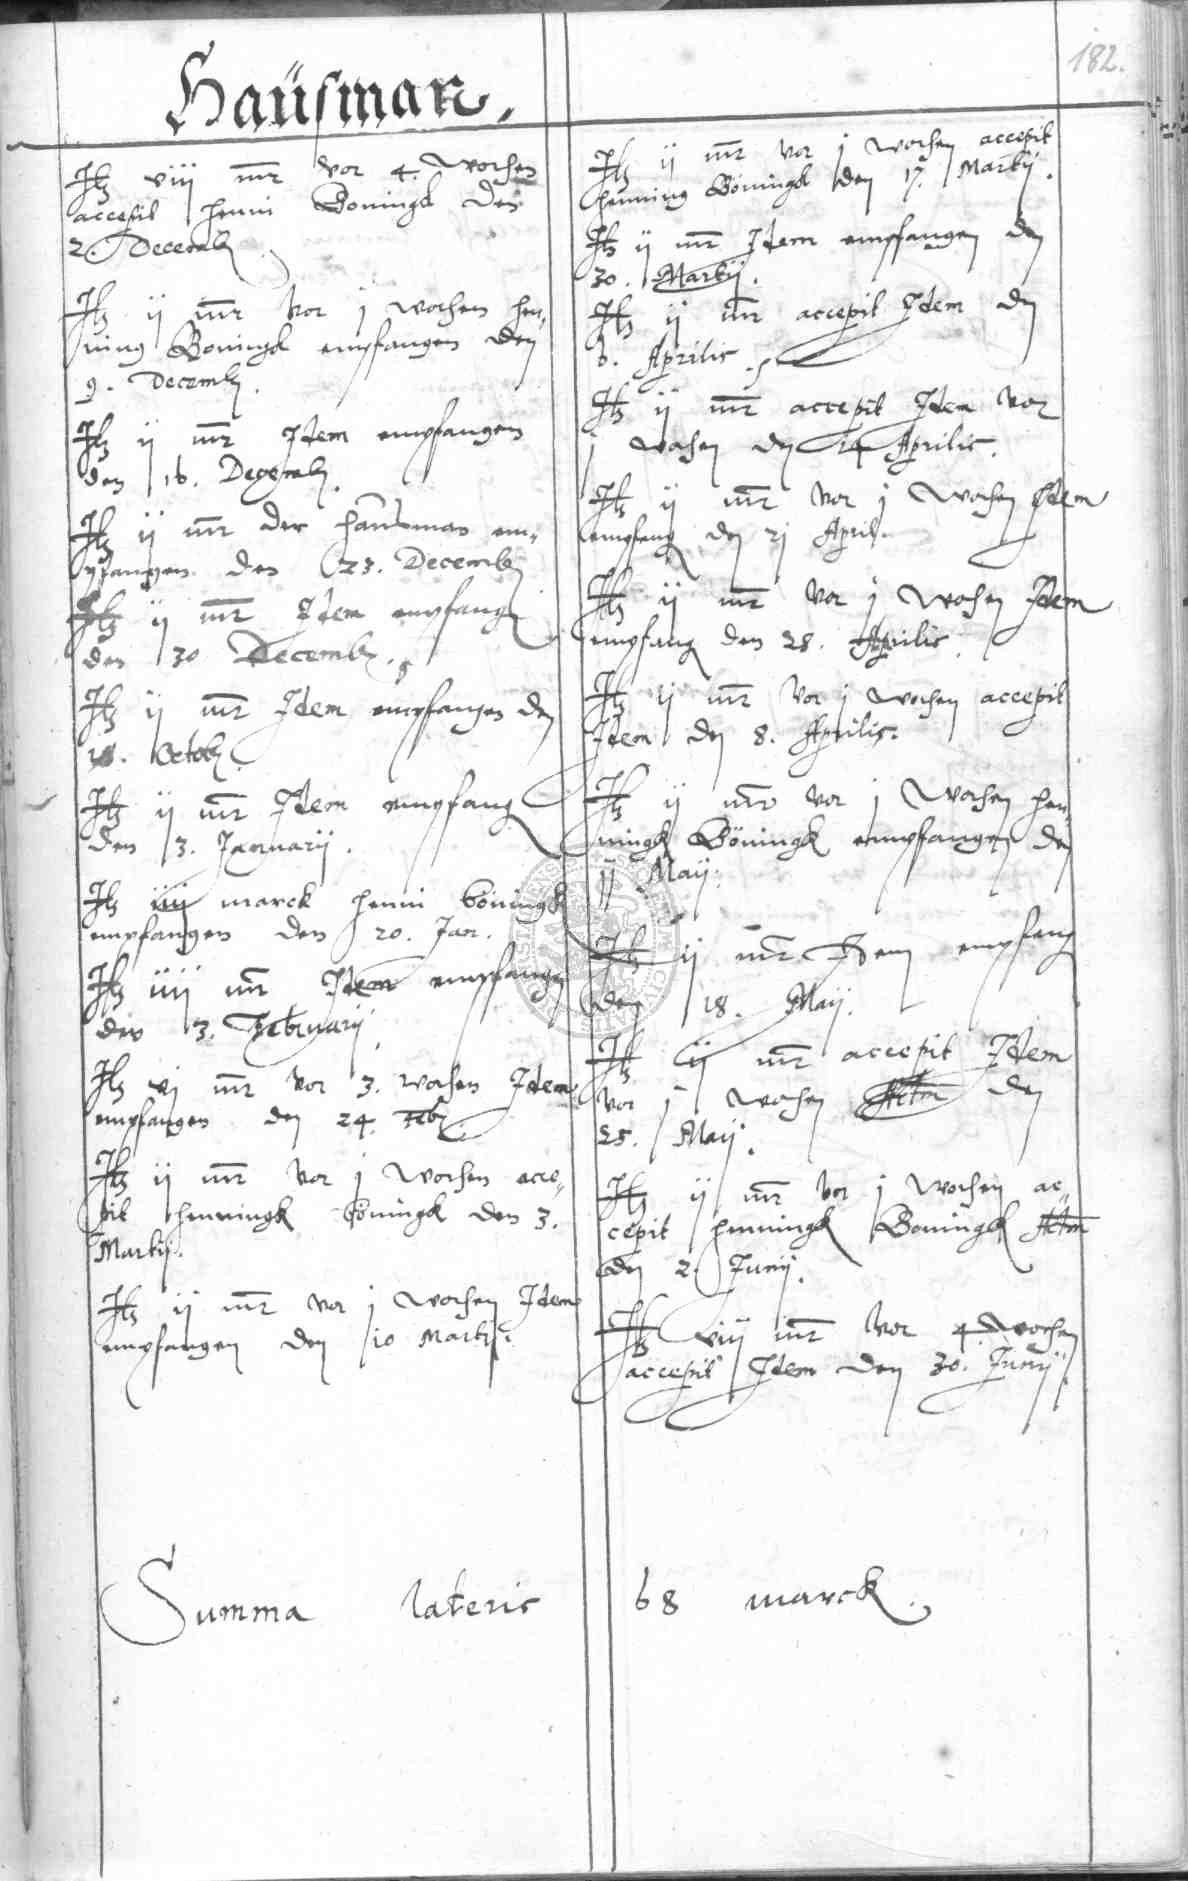 182.
Haüsman.
Itz viij mr vor 4. wochen
accepit Henni Boningk den
2. Decemb
Itz ij mr vor j wochen Hen-
ning Boningk empfangen den
9. Decemb.
Itz ij mr Idem empfangen
den 16. Decemb.
Itz ij mr der Hausman em-
pfangen den 23. Decemb
Itz ij mr Idem empfangen
den 30 Decemb.
Itz ij mr Idem empfangen den
Octob
Itz ij mr Idem empfang
den 3. January.
Itz iiij marck Henni Böningk
empfangen den 20. Jan.
Itz iiij mr Idem empfangen
den 3. February
Itz vj mr vor 3. wochen Idem
empfangen den 24. Feb
Itz ij mr vor j wochen acce-
pit Henningk Böningk den 3.
Martij.
Itz ij mr vor j wochen Idem
empfangen den 10 Martij.
Itz ij mr vor j wochen accepit
Henning Böningk den 17. Martij.
Itz ij mr Idem empfangen den
30. Martij.
Itz ij mr accepit Idem den
6. Aprilis.
Itz ij mr accepit Idem vor
j wochen den 14 Aprilis.
Itz ij mr vor j wochen Idem
empfang den 21 April.
Itz ij mr vor j wochen Idem
empfang den 28. Aprilis.
Itz ij mr vor j wochen accepit
Idem den 8. Aprilis.
Itz ij mr vor j wochen Hen-
ningk Böningk empfangen den
11 Maij.
Itz ij mr Idem empfang
den 18. Maij.
Itz ij mr accepit Idem
vor j wochen den
25. Maij.
Itz ij mr vor j wochen ac-
cepit Henningk Boningk
den 2. Junij.
Itz viij mr vor 4 wochen
accepit Idem den 30. Junij
Summa lateris 68 marck.